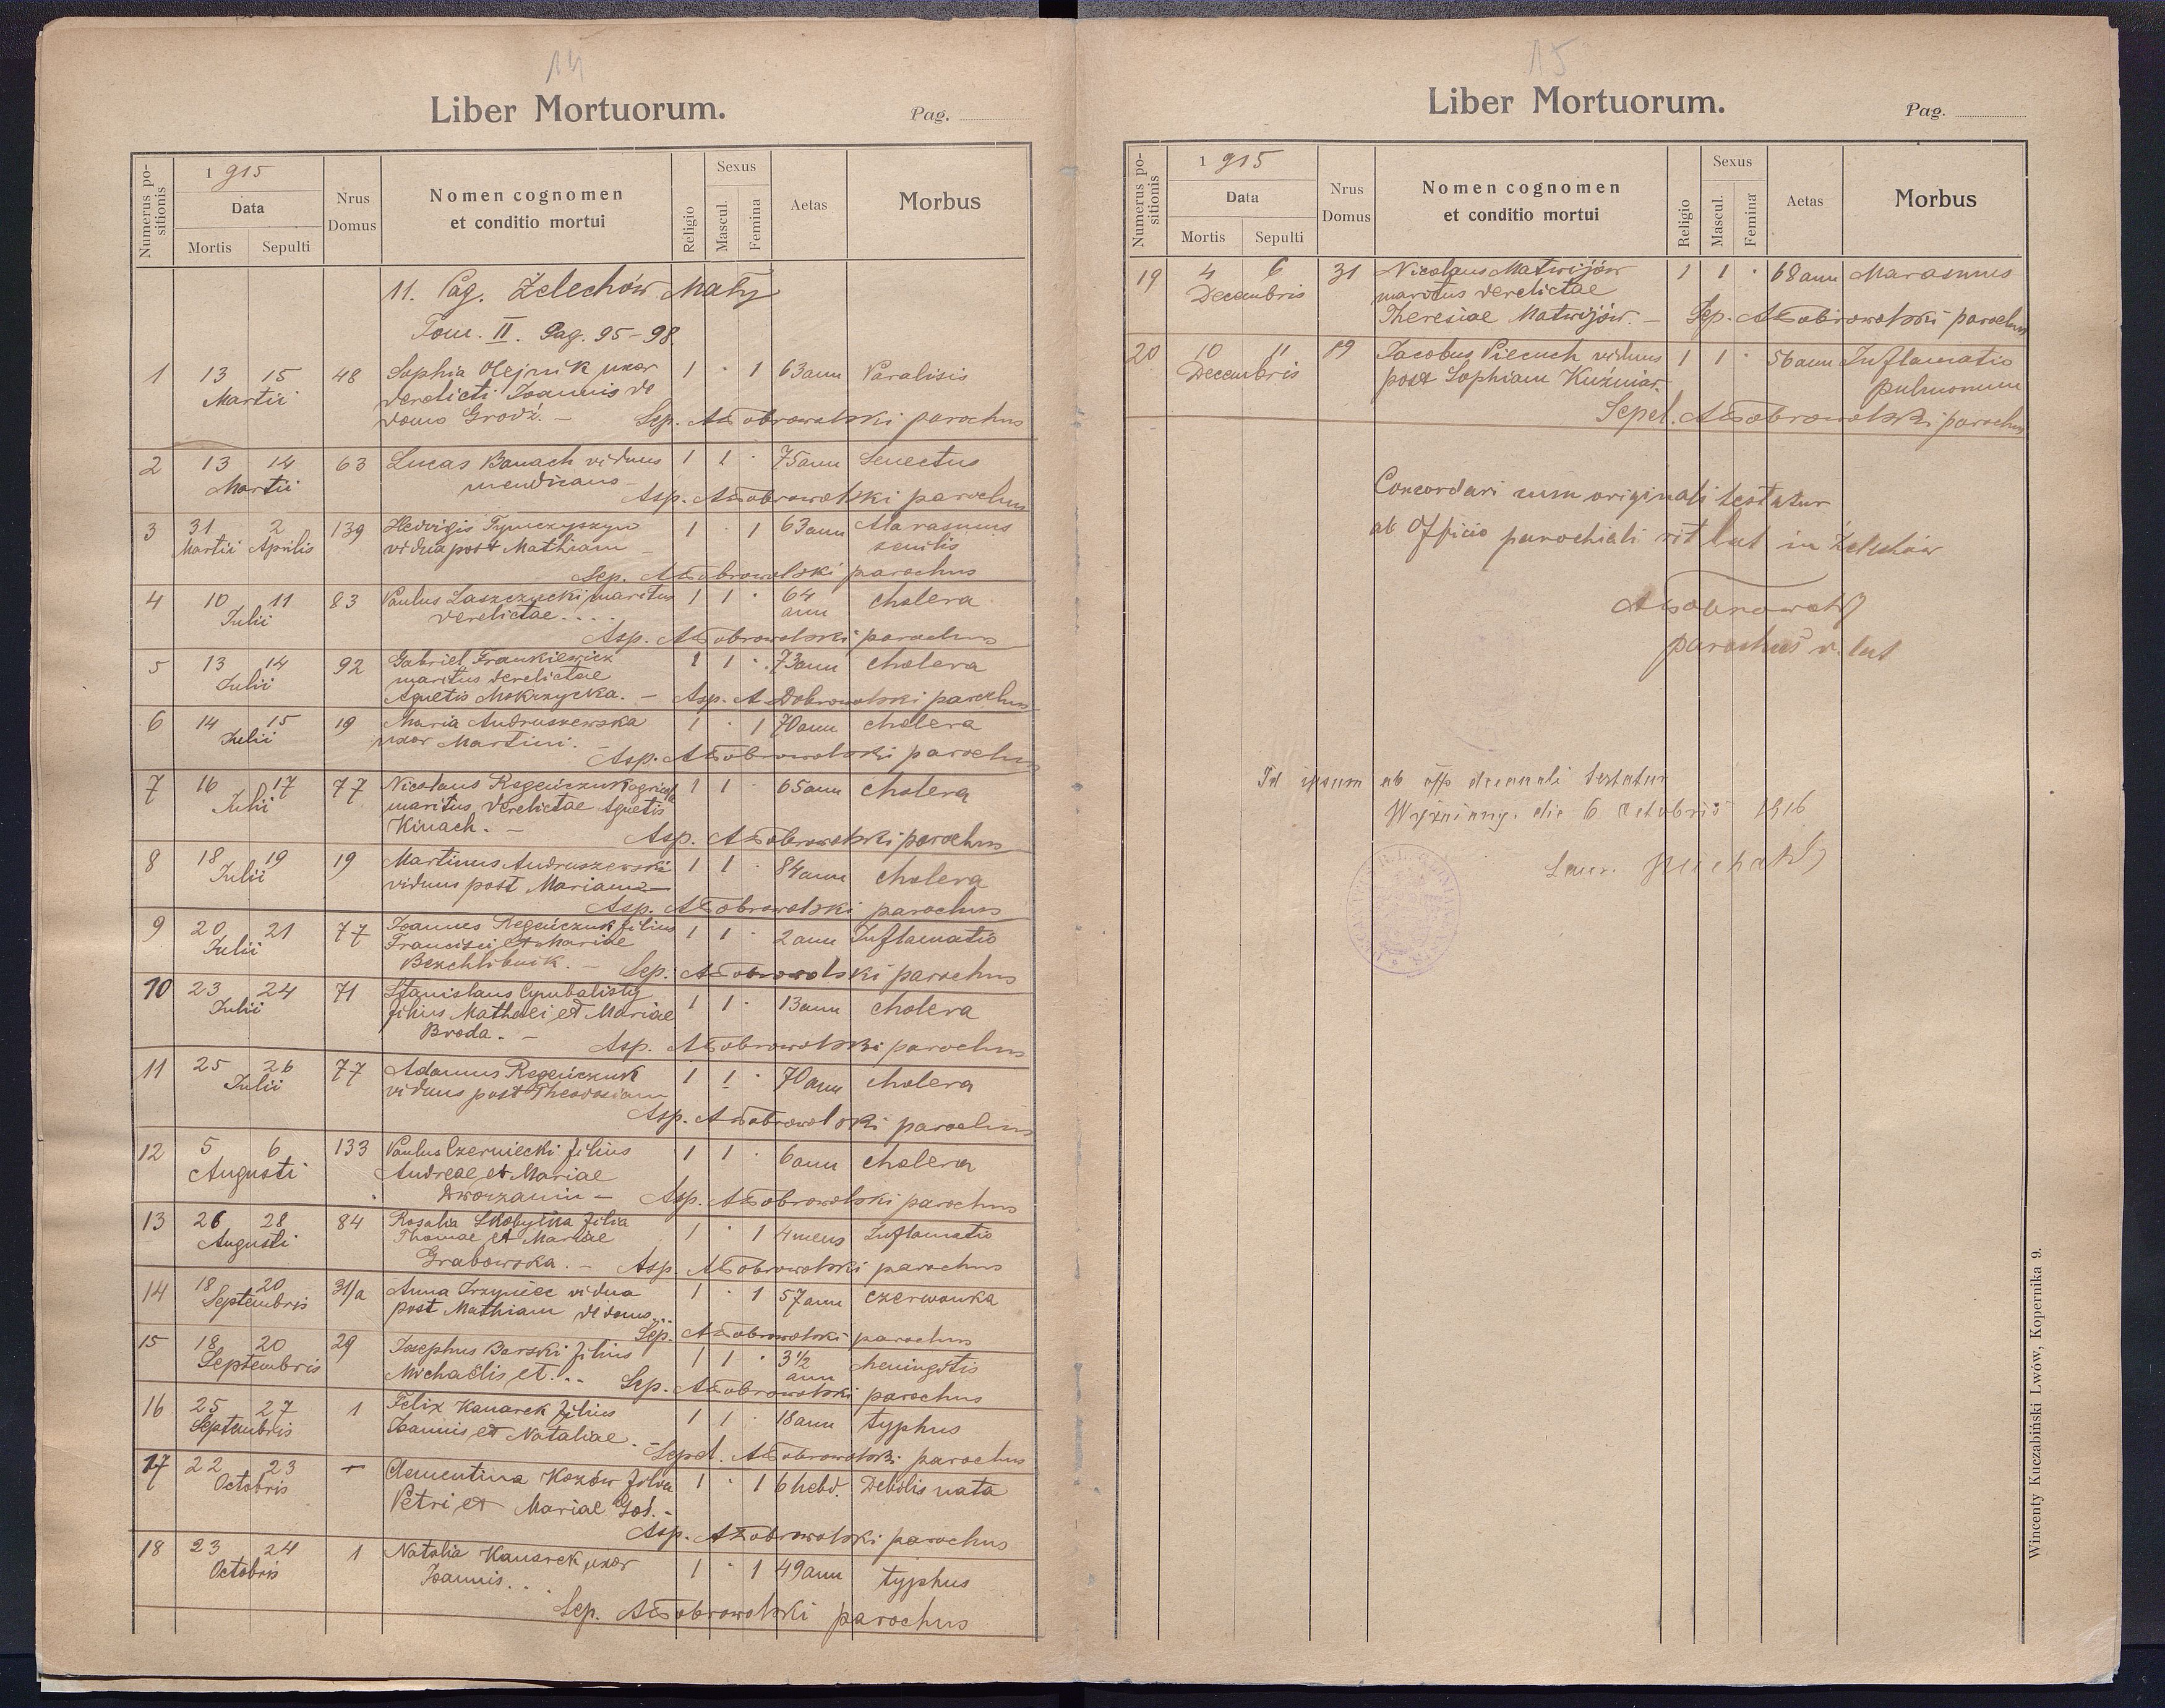 14
Liber Mortuorum.
Pag.
Numerus positionis
1 915
Data
Mortis Sepulti
Nrus Domus
Nomen cognomen
et conditio mortui
Religio
Sexus
Mascul.
Femina
Aetas
Morbus
11. Pag. Żelechów Mały
Tom. II. Pag. 95-98
1 13 15 48 Sophia Olejnik uxor 1 · 1 63 ann Paralisis
Martii derelicti Joannis de
domo Grodź. – Sep. ADobrowolski parochus
2 13 14 63 Lucas Banach viduus 1 1 · 75 ann Senectus
Martii mendicans –
Asp. ADobrowolski parochus
3 31 2 139 Hedvigis Tymczyszyn 1 · 1 63 ann Marasmus
Martii Aprilis vidua post Mathiam – senilis
Sep. ADobrowolski parochus
4 10 11 83 Paulus Laszczucki maritus 1 1 · 64 cholera
Julii derelictae .... ann
Asp. ADobrowolski parochus
5 13 14 92 Gabriel Frankiewicz 1 1 · 73 ann cholera
Julii maritus derelictae
Agnetis Mokrzycka. – Asp. A Dobrowolski parochus
6 14 15 19 Maria Andruszewska 1 · 1 70 ann cholera
Julii uxor Martini. –
Asp. ADobrowolski parochus
7 16 17 77 Nicolaus Regeńczuk agricola 1 1 · 65 ann cholera
Julii maritus derelictae Agnetis
Kinach. – Asp. ADobrowolski parochus
8 18 19 19 Martinus Andruszewski 1 1 · 84 ann cholera
Julii viduus post Mariam –
Asp. ADobrowolski parochus
9 20 21 77 Joannes Regeńczuk filius 1 1 · 2 ann Inflamatio
Julii Francisci et Mariae
Bezchlibnik. – Sep. ADobrowolski parochus
10 23 24 71 Stanislaus Cymbalisty 1 1 · 13 ann cholera
Julii filius Mathaei et Mariae
Broda. – Asp. ADobrowolski parochus
11 25 26 77 Adamus Regeńczuk 1 1 · 70 ann cholera
Julii viduus post Theodosiam
Asp. ADobrowolski parochus
12 5 6 133 Paulus Czerniecki filius 1 1 · 6 ann cholera
Augusti Andreae et Mariae
Dworzanin – Asp. ADobrowolski parochus
13 26 28 84 Rosalia Skobylka filia 1 · 1 4 mens Inflamatio
Augusti Thomae et Mariae
Grabowska. – Asp. ADobrowolski parochus
14 18 20 31/a Anna Irzyniec vidua 1 · 1 57 ann czerwonka
Septembris post Mathiam de domo ...
Sep. ADobrowolski parochus
15 18 20 29 Josephus Barski filius 1 1 · 3 1/2 Meningitis
Septembris Michaëlis et ... ann
Sep. ADobrowolski parochus
16 25 27 1 Felix Kanarek filius 1 1 · 18 ann typhus
Septembris Joannis et Nataliae. –
Sepel. ADobrowolski parochus
17 22 23 – Clementina Kozów filia 1 · 1 6 hebd. Debilis nata
Octobris Petri et Mariae Goś. –
Asp. ADobrowolski parochus
18 23 24 1 Natalia Kanarek uxor 1 · 1 49 ann typhus
Octobris Joannis. . .
Sep. ADobrowolski parochus
15
Liber Mortuorum.
Pag.
Numerus positionis
1 915
Data
Mortis Sepulti
Nrus Domus
Nomen cognomen
et conditio mortui
Religio
Sexus
Mascul.
Femina
Aetas
Morbus
19 4 6 31 Nicolaus Matwijów 1 1 · 68 ann Marasmus
Decembris maritus derelictae
Theresiae Matwijów. – Sep. ADobrowolski parochus
20 10 11 89 Jacobus Piecuch viduus 1 1 · 56 ann Inflamatio
Decembris post Sophiam Kuźniar. pulmonum
Sepel. ADobrowolski parochus
Concordari cum originali testatur
ab Officio parochiali rit lat in Żelechów
ADobrowolski
parochus r. lat
Id ipsum ab off decanali testatur
Wyżniany. die 6 Octobris 1916
Laur.
Wincenty Kuczabiński Lwów, Kopernika 9.